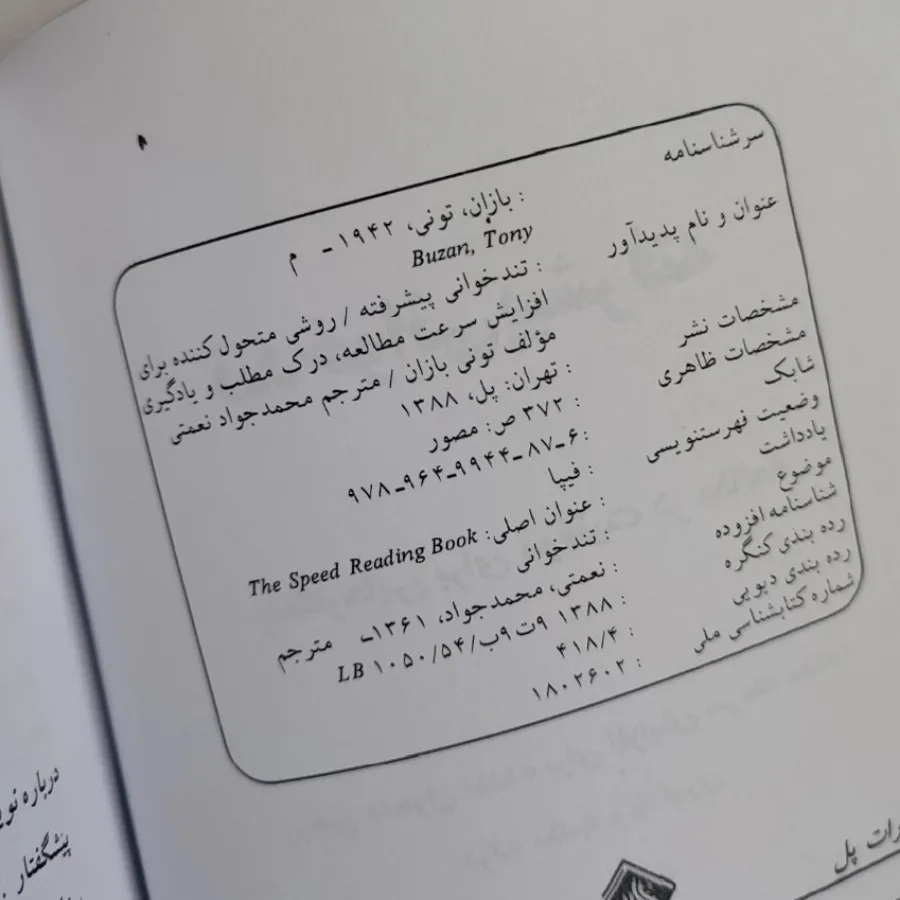 ۸
سرشناسنامه : بازان، تونی، ۱۹۴۲ - م
Buzan, Tony
عنوان و نام پدیدآور : تندخوانی پیشرفته / روشی متحول کننده برای
افزایش سرعت مطالعه، درک مطلب و یادگیری
مؤلف تونی بازان / مترجم محمدجواد نعمتی
مشخصات نشر : تهران: پل، ۱۳۸۸
مشخصات ظاهری : ۳۷۲ ص: مصور
شابک : ۹۷۸-۹۶۴-۹۹۴۴-۸۷-۶
وضعیت فهرستنویسی : فیپا
یادداشت : عنوان اصلی: The Speed Reading Book
موضوع : تندخوانی
شناسنامه افزوده : نعمتی، محمدجواد، ۱۳۶۱- مترجم
رده بندی کنگره : ۱۳۸۸ ۹ت ۹ب/۵۴/۱۰۵۰ LB
رده بندی دیویی : ۴۱۸/۴
شماره کتابشناسی ملی : ۱۸۰۲۶۰۲
درباره
پیشگفتار .
پل